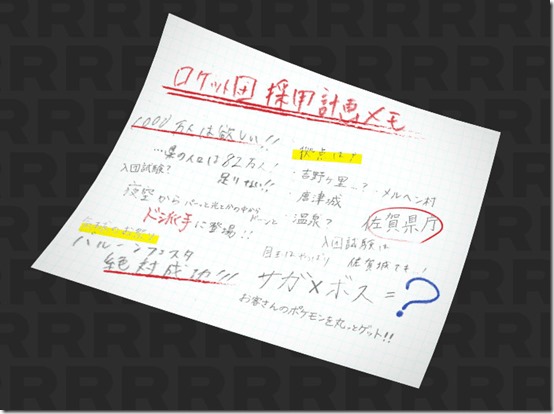 ロケット団 採用計画メモ
1000万人は欲しい!!
…県の人口は82万人!
足りない!!
入団試験?
夜空から パーッと光とかの中から ドーンと
ド派手に登場!!
バルーンフェスタ
絶対成功!!!
拠点は?
・吉野ヶ里…? ・メルヘン村
・唐津城
・温泉?
佐賀県庁
入団試験は
佐賀城でも…!
やっぱり
サガ×ボス=?
お客さんのポケモンを丸っとゲット!!